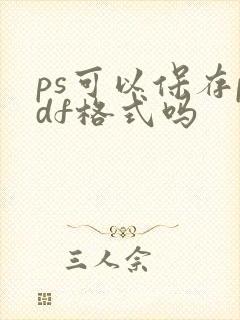 ps可以保存p
df格式吗
三人余